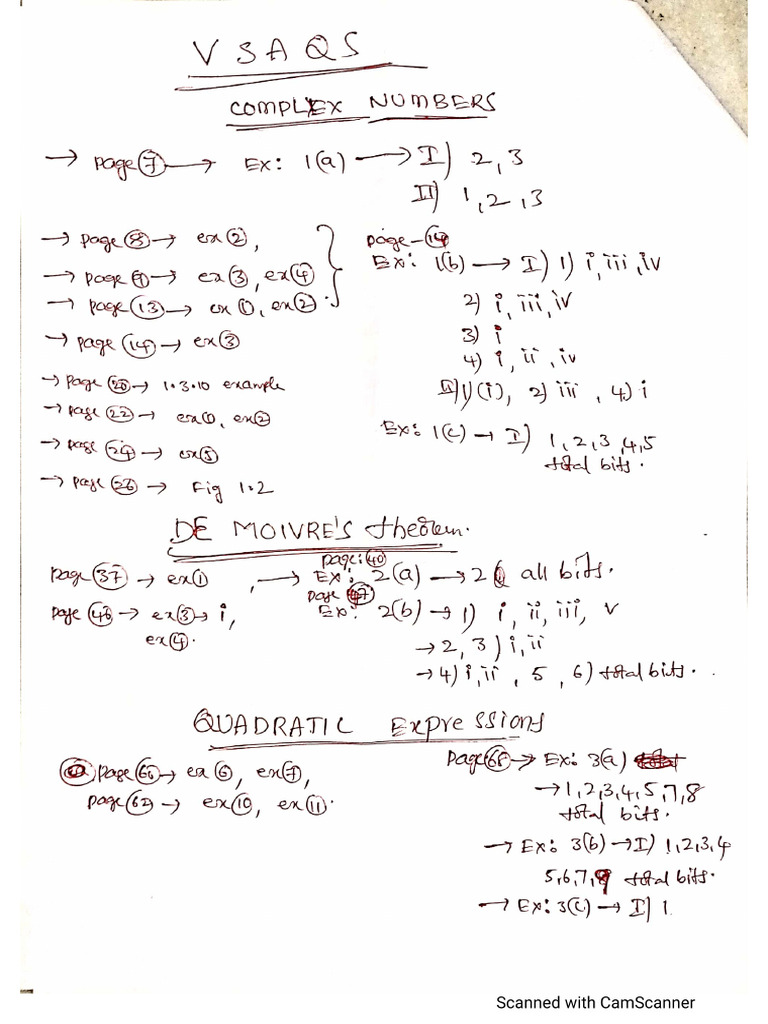 VSAQS
COMPLEX NUMBERS
→ page ⑦ → Ex: 1(a) → I) 2, 3
II) 1, 2, 3
→ page ⑧ → ex ②,
→ page → ex ③, ex ④
→ page ⑬ → ex ①, ex ②.
→ page ⑭ → ex ③
→ page ⑳ → 1.3.10 example
→ page ㉒ → ex ①, ex ②
→ page ㉔ → ex ⑤
→ page ㉖ → Fig 1.2
page - ⑭
Ex: 1(b) → I) 1) i, iii, iv
2) i, iii, iv
3) i
4) i, ii, iv
II) 1) (i), 2) iii, 4) i
Ex: 1(c) → I) 1, 2, 3, 4, 5
total bits.
DE MOIVRE'S theorem.
page ㊲ → ex ①, → Ex: 2(a) → 2 all bits.
page: ㊵
page ㊻ → ex ③ → i,
ex ④.
page ㊼
Ex: 2(b) → 1) i, ii, iii, v
→ 2, 3) i, ii
→ 4) i, ii, 5, 6) total bits.
QUADRATIC Expressions
page → ex ⑥, ex ⑦,
page (62) → ex ⑩, ex ⑪.
page (68) → Ex: 3(a)
→ 1, 2, 3, 4, 5, 7, 8
total bits.
→ Ex: 3(b) → I) 1, 2, 3, 4
5, 6, 7, total bits.
→ Ex: 3(c) → I) 1
Scanned with CamScanner